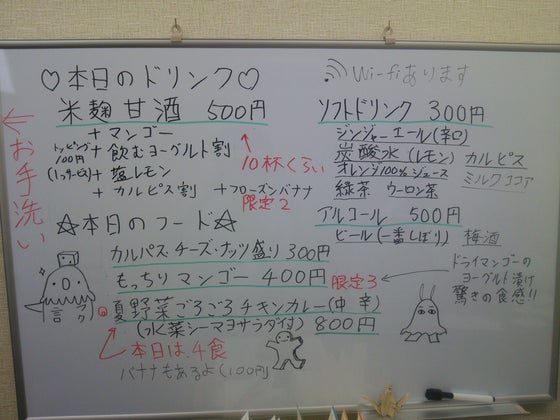 ♡本日のドリンク♡
米麹甘酒 500円
+マンゴー
トッピング100円
+飲むヨーグルト割
(1つサービス)
+塩レモン
+カルピス割
+フローズンバナナ
限定2
10杯くらい
←お手洗い
☆本日のフード☆
カルパス・チーズ・ナッツ盛り 300円
もっちりマンゴー 400円
限定3
夏野菜ごろごろチキンカレー(中辛)
(水菜シーマヨサラダ付) 800円
本日は、4食
バナナもあるよ(100円)
Wi-fiあります
ソフトドリンク 300円
ジンジャーエール(辛口)
炭酸水(レモン) カルピス
オレンジ100%ジュース
ミルクココア
緑茶 ウーロン茶
アルコール 500円
ビール(一番しぼり) 梅酒
ドライマンゴーの
ヨーグルト漬け
驚きの食感!!